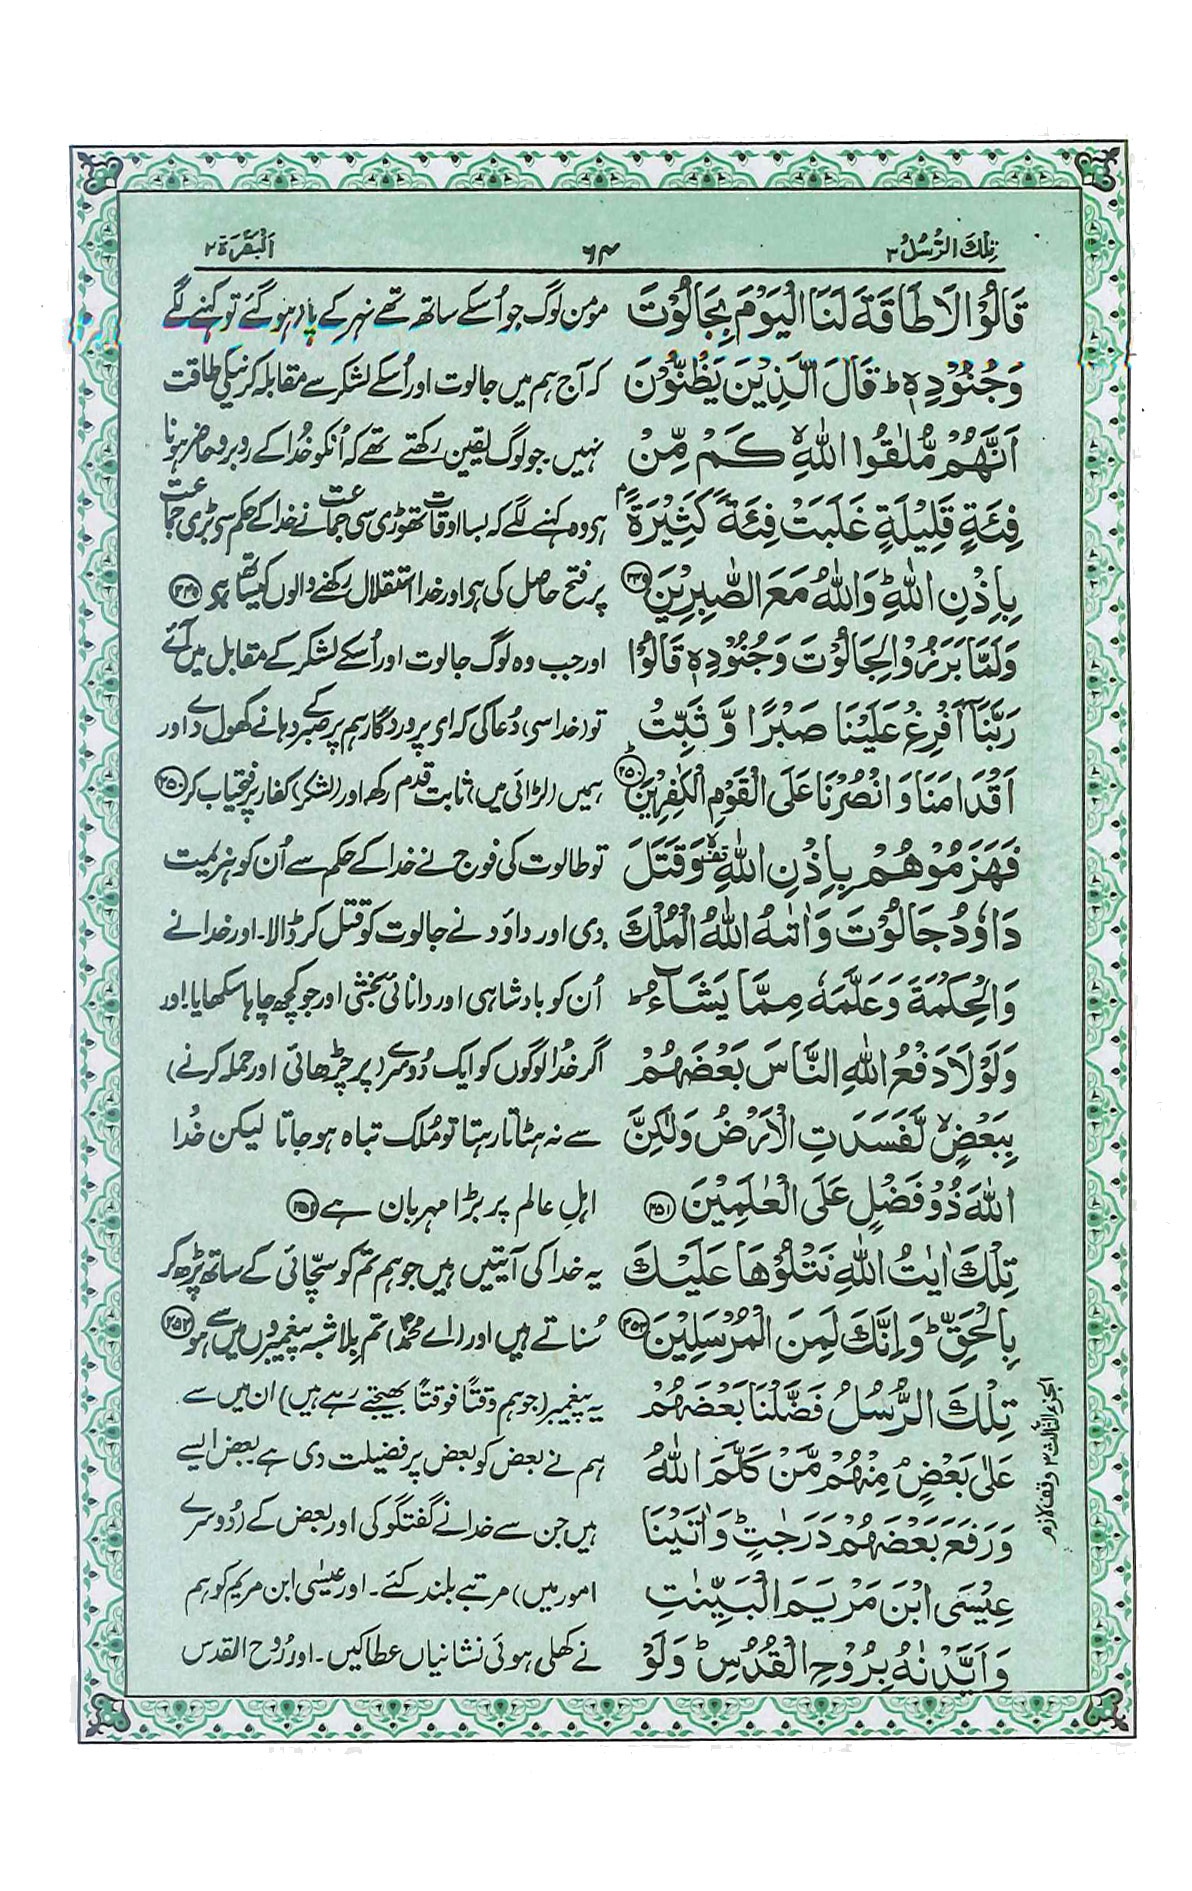 تِلْكَ الرُّسُلُ ٣
٦٤
اَلْبَقَرَة ٢
قَالُوْا لَا طَاقَةَ لَنَا الْيَوْمَ بِجَالُوْتَ
وَجُنُوْدِهٖ ؕ قَالَ الَّذِيْنَ يَظُنُّوْنَ
اَنَّهُمْ مُّلٰقُوا اللّٰهِ ۙ كَمْ مِّنْ
فِئَةٍ قَلِيْلَةٍ غَلَبَتْ فِئَةً كَثِيْرَةًۢ
بِاِذْنِ اللّٰهِ ؕ وَاللّٰهُ مَعَ الصّٰبِرِيْنَ ﴿۲۴۹﴾
وَلَمَّا بَرَزُوْا لِجَالُوْتَ وَجُنُوْدِهٖ قَالُوْا
رَبَّنَاۤ اَفْرِغْ عَلَيْنَا صَبْرًا وَّ ثَبِّتْ
اَقْدَامَنَا وَ انْصُرْنَا عَلَى الْقَوْمِ الْكٰفِرِيْنَ ؕ﴿۲۵۰﴾
فَهَزَمُوْهُمْ بِاِذْنِ اللّٰهِ ۙ۫ وَقَتَلَ
دَاوٗدُ جَالُوْتَ وَاٰتٰىهُ اللّٰهُ الْمُلْكَ
وَالْحِكْمَةَ وَعَلَّمَهٗ مِمَّا يَشَآءُ ؕ
وَلَوْلَا دَفْعُ اللّٰهِ النَّاسَ بَعْضَهُمْ
بِبَعْضٍ ۙ لَّفَسَدَتِ الْاَرْضُ وَلٰكِنَّ
اللّٰهَ ذُوْ فَضْلٍ عَلَى الْعٰلَمِيْنَ ﴿۲۵۱﴾
تِلْكَ اٰيٰتُ اللّٰهِ نَتْلُوْهَا عَلَيْكَ
بِالْحَقِّ ؕ وَاِنَّكَ لَمِنَ الْمُرْسَلِيْنَ ﴿۲۵۲﴾
تِلْكَ الرُّسُلُ فَضَّلْنَا بَعْضَهُمْ
عَلٰى بَعْضٍ ۘ مِنْهُمْ مَّنْ كَلَّمَ اللّٰهُ
وَرَفَعَ بَعْضَهُمْ دَرَجٰتٍ ؕ وَاٰتَيْنَا
عِيْسَى ابْنَ مَرْيَمَ الْبَيِّنٰتِ
وَاَيَّدْنٰهُ بِرُوْحِ الْقُدُسِ ؕ وَلَوْ
مومن لوگ جو اُسکے ساتھ تھے نہر کے پار ہوگئے تو کہنے لگے
کہ آج ہم میں جالوت اور اُسکے لشکر سے مقابلہ کرنیکی طاقت
نہیں۔ جو لوگ یقین رکھتے تھے کہ اُنکو خُدا کے روبرو حاضر ہونا
ہی وہ کہنے لگے کہ بسا اوقات تھوڑی سی جماعت نے خدا کے حکم سی بڑی جماعت
پر فتح حاصل کی ہی اور خدا استقلال رکھنے والوں کیساتھ ہی ﴿۲۴۹﴾
اور جب وہ لوگ جالوت اور اُسکے لشکر کے مقابل میں آئے
تو (خدا سی) دُعا کی کہ ای پروردگار ہم پر صبر کے دہانے کھول دے اور
ہمیں (لڑائی میں) ثابت قدم رکھ اور (لشکر) کفار پر فتحیاب کر ﴿۲۵۰﴾
تو طالوت کی فوج نے خدا کے حکم سے اُن کو ہزیمت
دی اور داؤد نے جالوت کو قتل کر ڈالا۔ اور خدا نے
اُن کو بادشاہی اور دانائی بخشی اور جو کچھ چاہا سکھایا۔ اور
اگر خُدا لوگوں کو ایک دُوسرے (پر چڑھائی اور حملہ کرنے)
سے نہ ہٹاتا رہتا تو مُلک تباہ ہو جاتا لیکن خُدا
اہلِ عالم پر بڑا مہربان ہے ﴿۲۵۱﴾
یہ خدا کی آیتیں ہیں جو ہم تم کو سچّائی کے ساتھ پڑھ کر
سُناتے ہیں اور (اے محمدؐ) تم بِلاشبہ پیغمبروں میں سے ہو ﴿۲۵۲﴾
یہ پیغمبر (جو ہم وقتاً فوقتاً بھیجتے رہے ہیں) ان میں سے
ہم نے بعض کو بعض پر فضیلت دی ہے بعض ایسے
ہیں جن سے خدا نے گفتگو کی اور بعض کے (دُوسرے
امور میں) مرتبے بلند کئے۔ اور عیسٰی ابن مریم کو ہم
نے کھلی ہوئی نشانیاں عطا کیں۔ اور رُوح القدس
الجزء الثالث ٣ وقف لازم